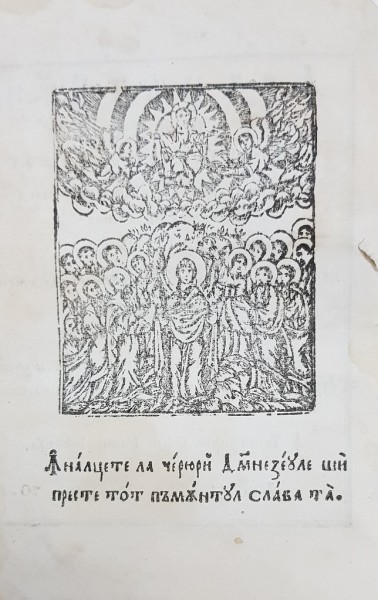 Ꙟна́лцете ла че́рюрй Дм҃незе́ꙋле шй
престе то́т пъмѫ́нтꙋл сла́ва та̀.